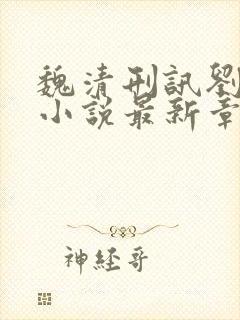 魏清刑訊劉
小說最新章
神經哥